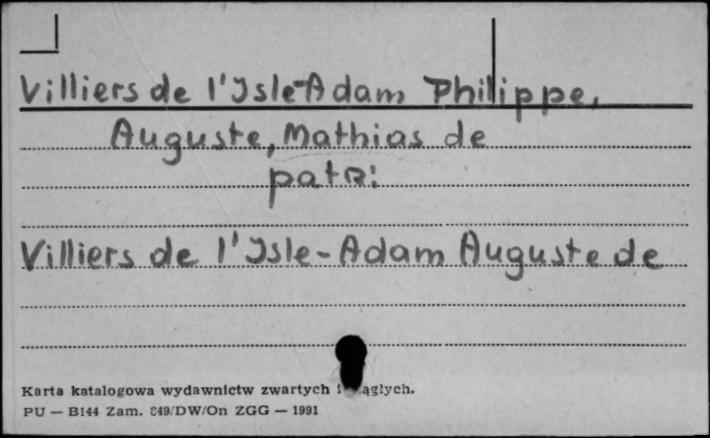 Villiers de l'Isle-Adam Philippe,
Auguste, Mathias de
patrz:
Villiers de l'Isle-Adam Auguste de
Karta katalogowa wydawnictw zwartych i ciągłych.
PU — B144 Zam. 849/DW/On ZGG — 1991